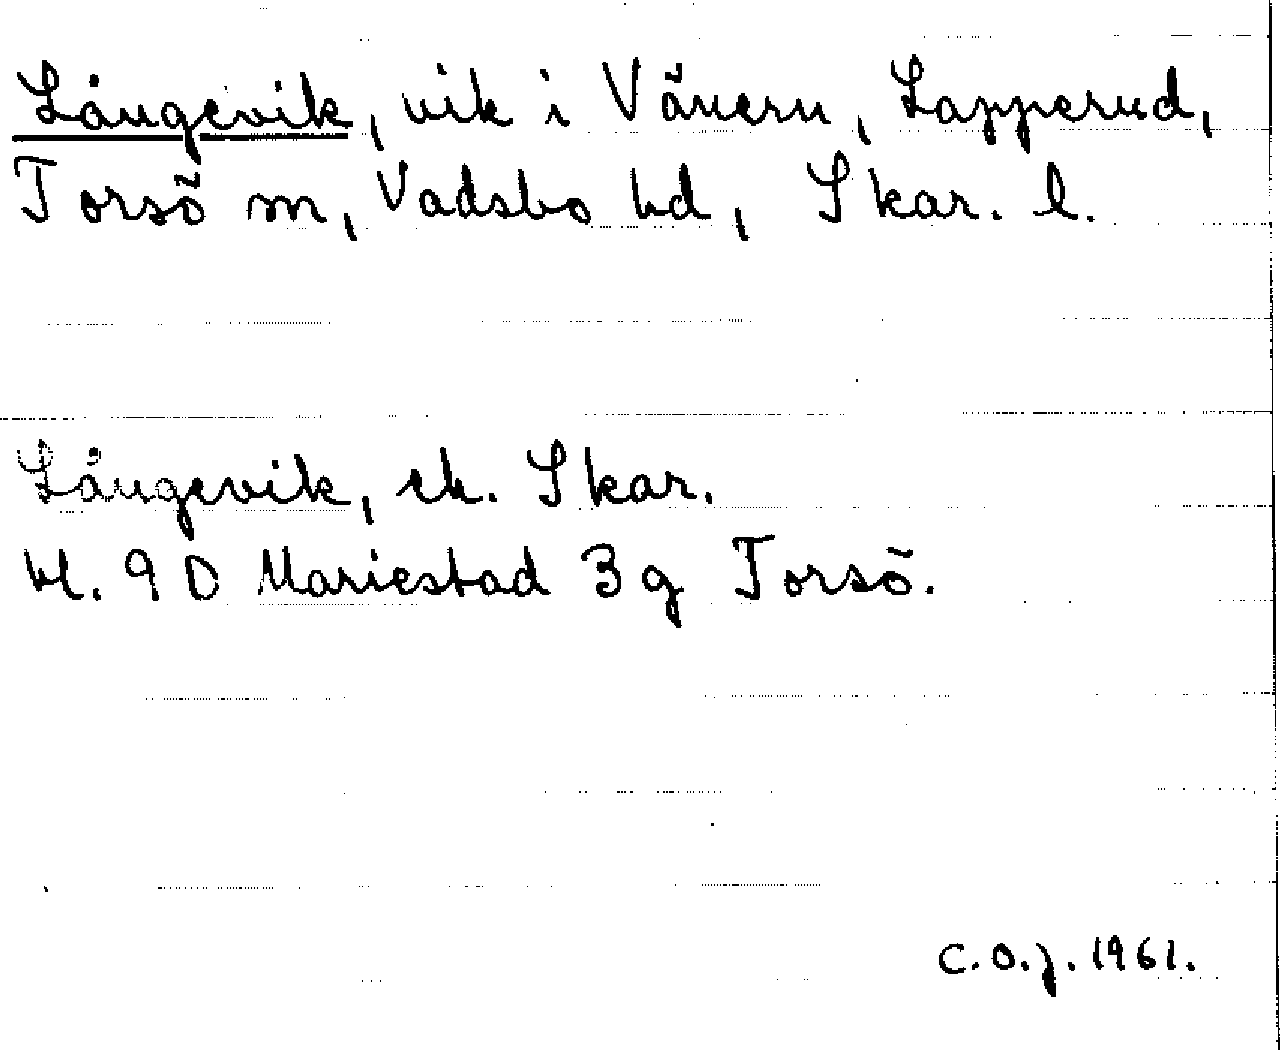 Långevik, vik i Vänern, Lapperud,
Torsö sn, Vadsbo hd, Skar. l.
Långevik, ek. Skar.
bl. 9 D Mariestad 3 g Torsö.
C.O.J. 1961.